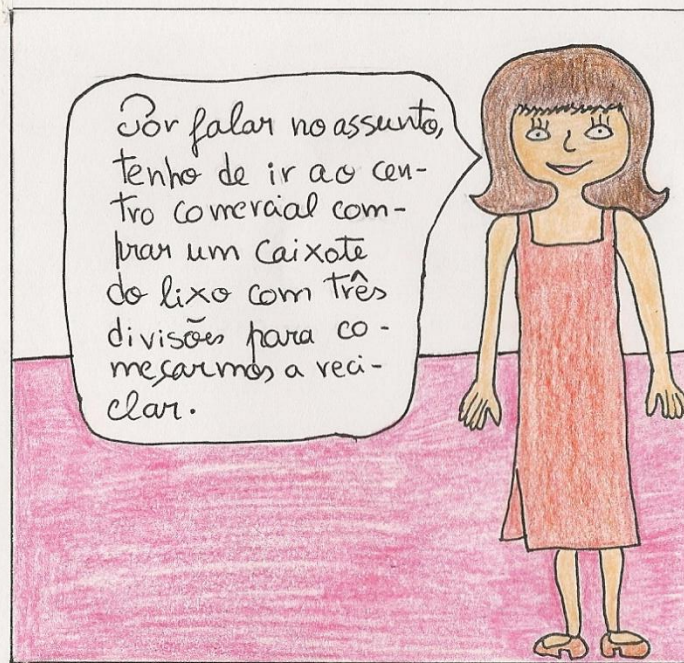 Por falar no assunto,
tenho de ir ao cen-
tro comercial com-
prar um caixote
do lixo com três
divisões para co-
meçarmos a reci-
clar.